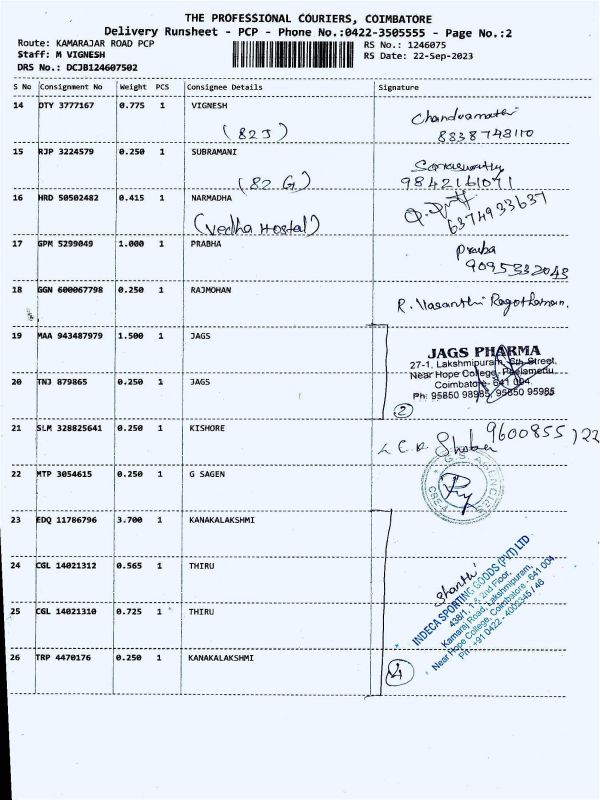 THE PROFESSIONAL COURIERS, COIMBATORE
Delivery Runsheet - PCP - Phone No.:0422-3505555 - Page No.:2
Route: KAMARAJAR ROAD PCP RS No.: 1246075
Staff: M VIGNESH RS Date: 22-Sep-2023
DRS No.: DCJB124607502
S No Consignment No Weight PCS Consignee Details Signature
14 DTY 3777167 0.775 1 VIGNESH Chandramathi
(82J) 8838748110
15 RJP 3224579 0.250 1 SUBRAMANI
(82 G) 9842161071
16 HRD 50502482 0.415 1 NARMADHA
(Vedha Hostal) 6374933637
17 GPM 5299049 1.000 1 PRABHA Praba
9095332043
18 GGN 600067798 0.250 1 RAJMOHAN R. Vasanthi Ragothaman.
19 MAA 943487979 1.500 1 JAGS JAGS PHARMA
27-1, Lakshmipuram, 6th Street,
Near Hope College, Peelamedu,
20 TNJ 879865 0.250 1 JAGS Coimbatore- 641 004.
Ph: 95850 98985, 95850 95985
2
21 SLM 328825641 0.250 1 KISHORE 9600855122
22 MTP 3054615 0.250 1 G SAGEN G.S. AGENCIES
CBE-4
23 EDQ 11786796 3.700 1 KANAKALAKSHMI
24 CGL 14021312 0.565 1 THIRU Shanthi
INDECA SPORTING GOODS (PVT) LTD
438/1, 1-8, 2nd Floor,
Kamaraj Road, Lakshmipuram,
Near Hope College, Coimbatore - 641 004.
Ph : +91 0422 - 4003345 / 46
25 CGL 14021310 0.725 1 THIRU
26 TRP 4470176 0.250 1 KANAKALAKSHMI 4